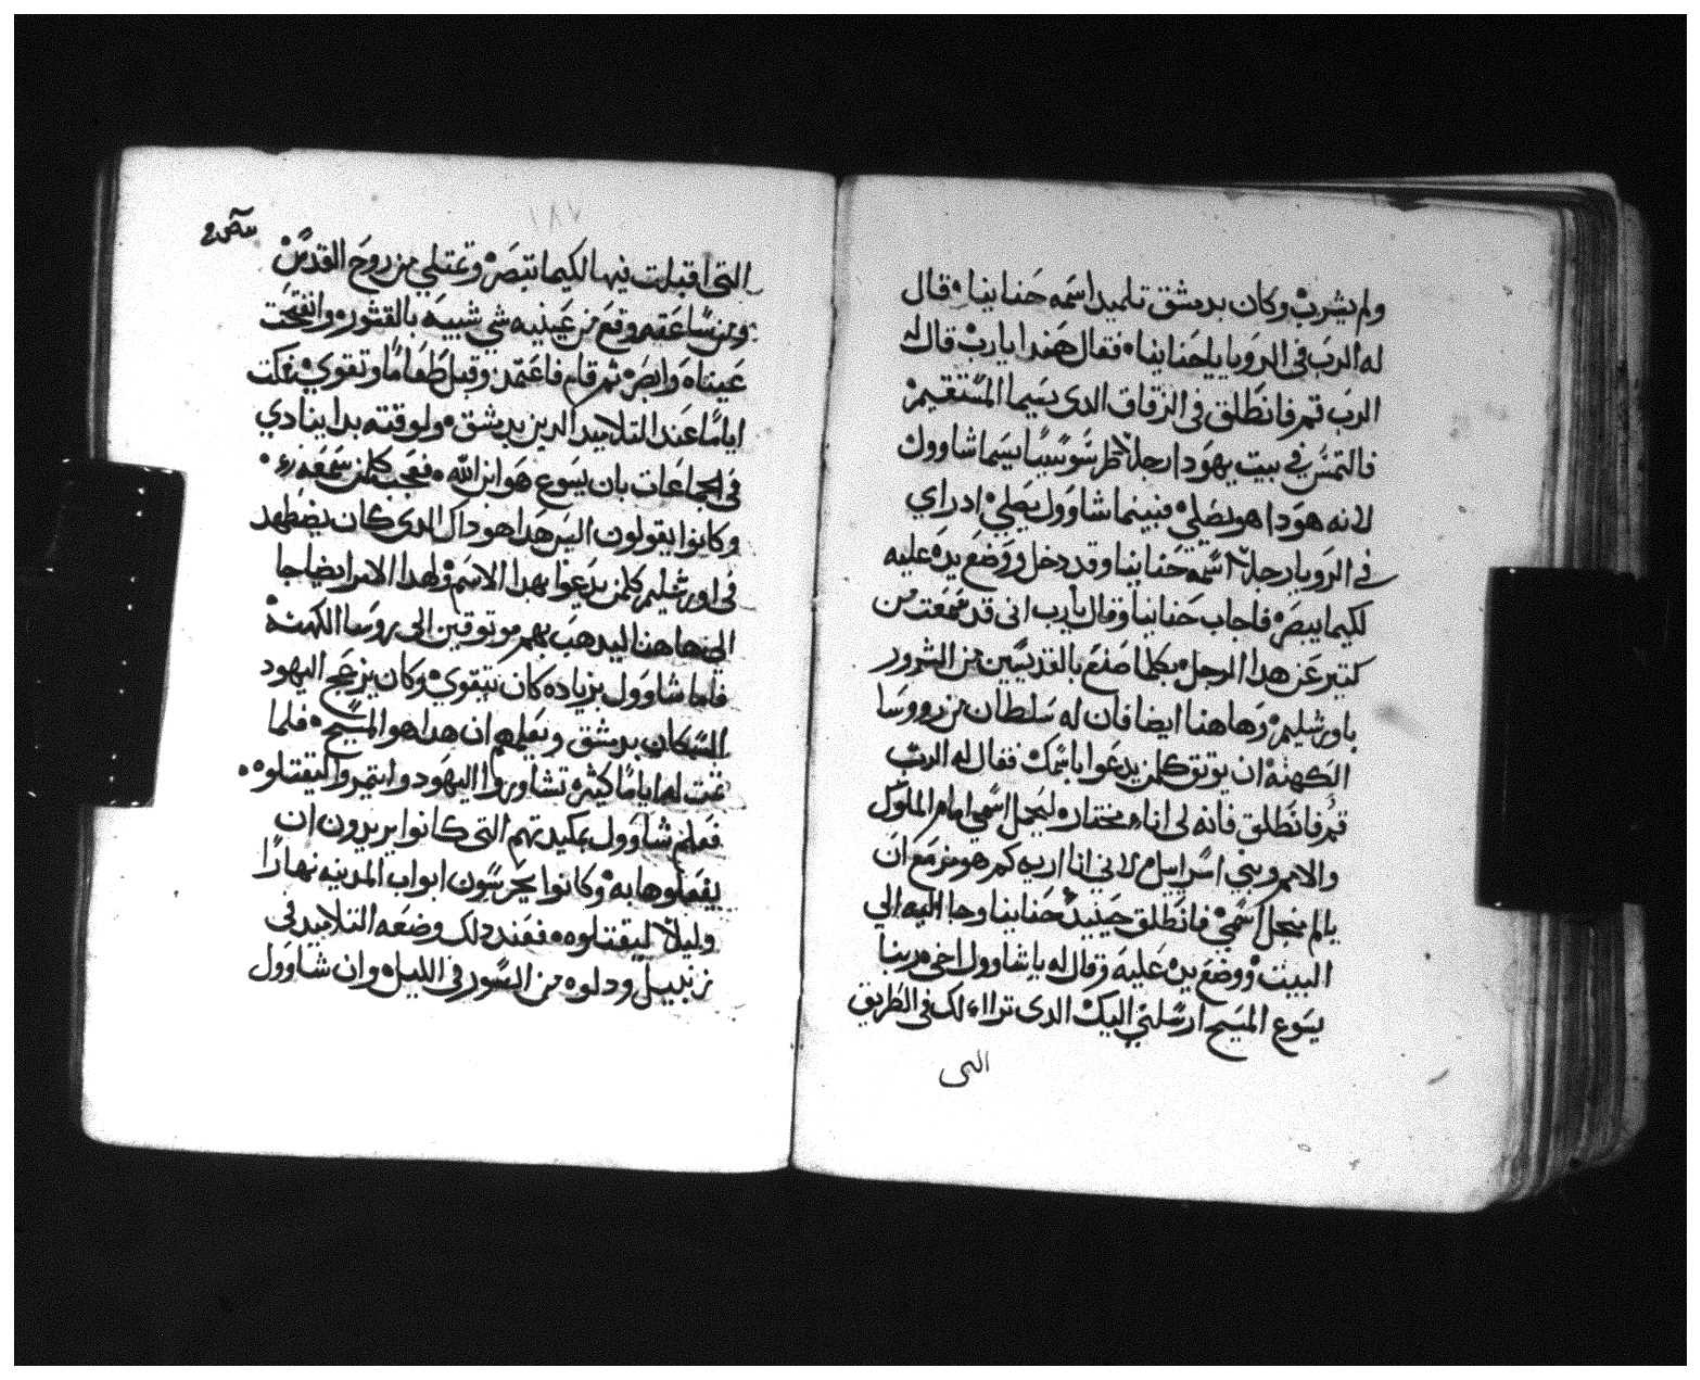 ولم يشرب وكان بدمشق تلميد اسمه حنانيا قال
له الرب في الرويا يا حنانيا فقال هندا يارب قال له
الرب قم فانطلق في الزقاق الدى يسيما المستقيم
فالتمس في بيت يهودا رجلا طرسوسيا يسما شاوول
لانه هودا هو يصلي فبينما شاوول يصلي اد راي
في الرويا رجلا اسمه حنانيا وقد دخل ووضع يده عليه
لكيما يبصر فاجاب حنانيا وقال يارب انى قد سمعت من
كتير عن هدا الرجل بكلما صنع بالقديسين من الشرور
باورشليم وهاهنا ايضا فان له سلطان من رووسا
الكهنه ان يوتق كلمن يدعوا باسمك فقال له الرب
قم فانطلق فانه لى اناء مختاره ليحمل اسمي امام الملوك
والامم وبني اسراييل لاني انا اريه كم هو مزمع ان
يالم منجل اسمي فانطلق حينيد حنانيا وجا اليه الي
البيت ووضع يده عليه وقال له يا شاوول اخى ربنا
يسوع المسيح ارسلني اليك الدى تراا لك في الطريق
التى
١٨٧
التى اقبلت فيها لكيما تبصر وتمتلي من روح القدس
ومن ساعته وقع من عينيه شي شبيه بالقشور وانفتحت
عيناه وابصر ثم قام فاعتمد وقبل طعاما وتقوي فمكت
اياما عند التلاميد الدين بدمشق ولوقته بدا ينادي
في الجماعات بان يسوع هو ابن الله فعجب كلمن سمعه
وكانوا يقولون اليس هدا هو داك الدى كان يضطهد
في اورشليم كلمن يدعوا بهدا الاسم ولهدا الامر ايضا جا
الى هاهنا ليدهب بهم موتوقين الى روسا الكهنه
فاما شاوول بزياده كان يتقوي وكان يزعج اليهود
السكان بدمشق ويعلمهم ان هدا هو المسيح فلما
تمت له اياما كثيره تشاوروا اليهود وايتمروا ليقتلوه
فعلم شاوول بمكيدتهم التى كانوا يريدون ان
يفعلوها به وكانوا يحرسون ابواب المدينه نهارا
وليلا ليقتلوه فعند دلك وضعه التلاميد في
زنبيل ودلوه من السور في الليل وان شاوول